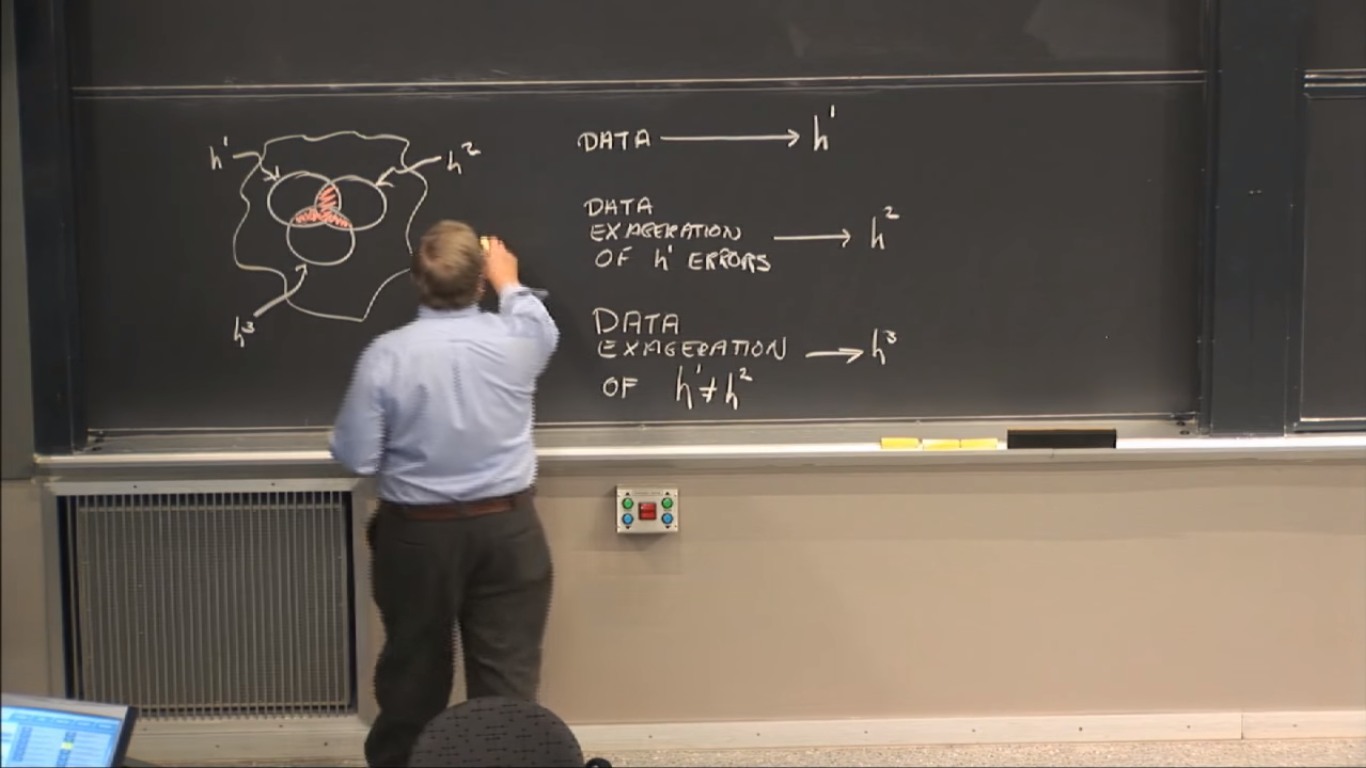 h¹
h²
h³
DATA ⟶ h¹
DATA
EXAGERATION ⟶ h²
OF h¹ ERRORS
DATA
EXAGERATION ⟶ h³
OF h¹≠h²